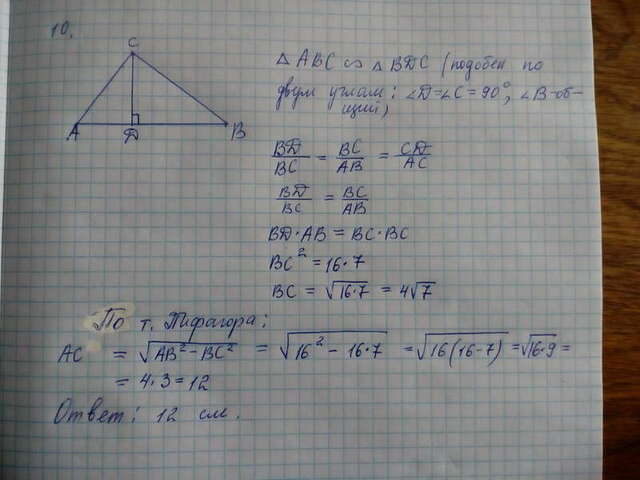 10.
C
A
D
B
△ABC ∽ △BDC (подобен по
двум углам: ∠D=∠C=90°, ∠B-об-
щий)
BD/BC = BC/AB = CD/AC
BD/BC = BC/AB
BD·AB = BC·BC
BC² = 16·7
BC = √16·7 = 4√7
По т. Пифагора:
AC = √AB²-BC² = √16²-16·7 = √16(16-7) = √16·9 =
= 4·3=12
Ответ: 12 см.